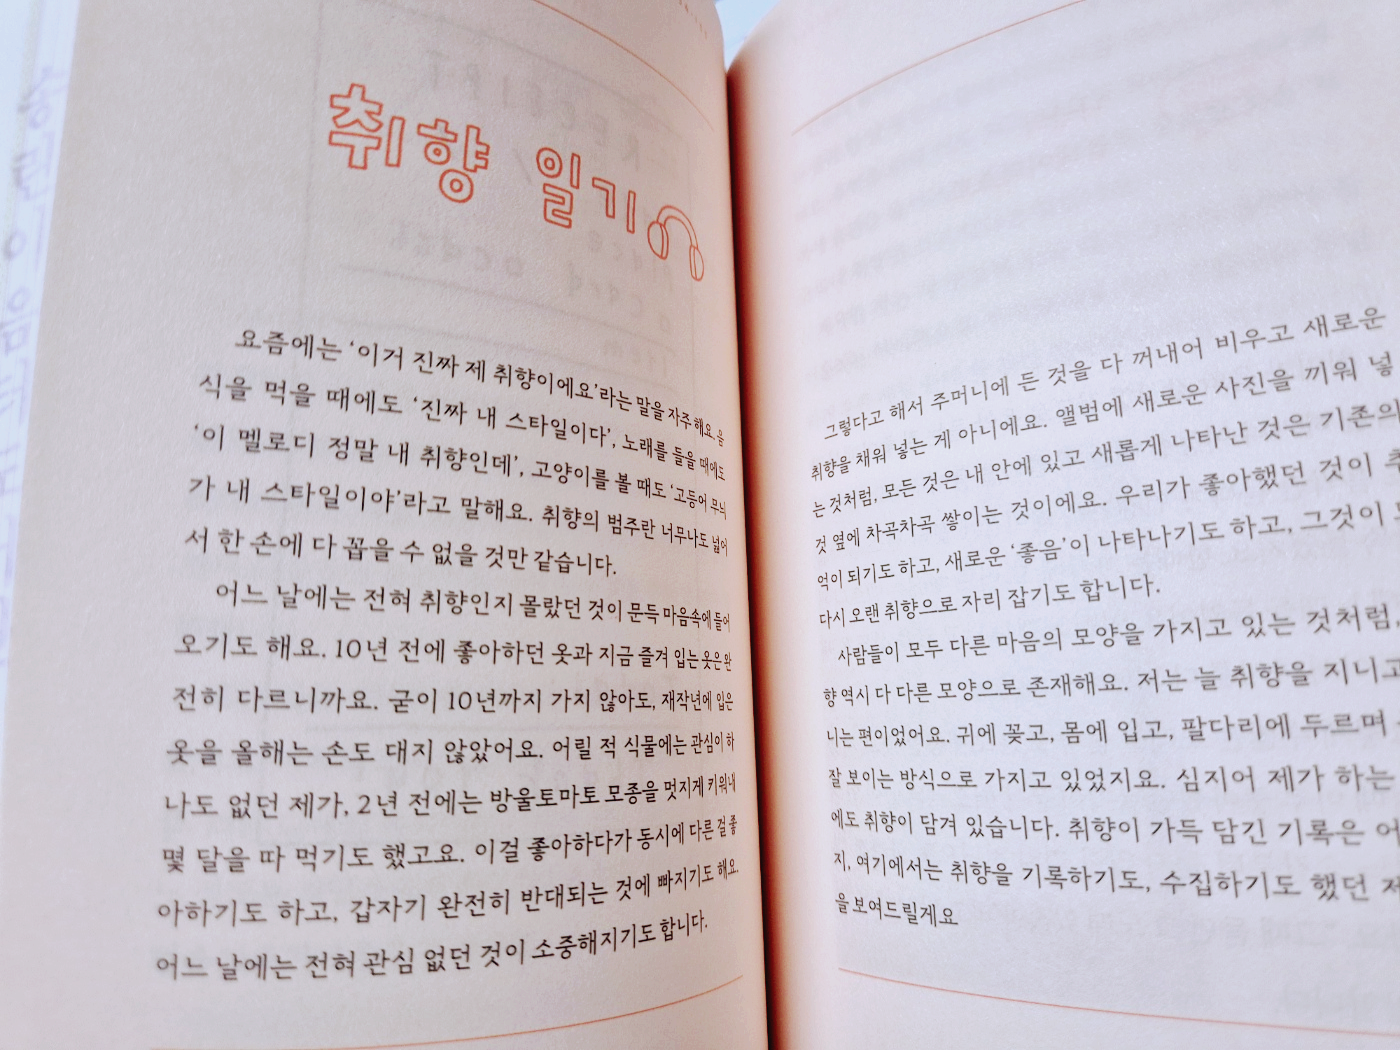 취향 일기
요즘에는 ‘이거 진짜 제 취향이에요’라는 말을 자주 해요. 음
식을 먹을 때에도 ‘진짜 내 스타일이다’, 노래를 들을 때에도
‘이 멜로디 정말 내 취향인데’, 고양이를 볼 때도 ‘고등어 무늬
가 내 스타일이야’라고 말해요. 취향의 범주란 너무나도 넓어
서 한 손에 다 꼽을 수 없을 것만 같습니다.
어느 날에는 전혀 취향인지 몰랐던 것이 문득 마음속에 들어
오기도 해요. 10년 전에 좋아하던 옷과 지금 즐겨 입는 옷은 완
전히 다르니까요. 굳이 10년까지 가지 않아도, 재작년에 입은
옷을 올해는 손도 대지 않았어요. 어릴 적 식물에는 관심이 하
나도 없던 제가, 2년 전에는 방울토마토 모종을 멋지게 키워내
몇 달을 따 먹기도 했고요. 이걸 좋아하다가 동시에 다른 걸 좋
아하기도 하고, 갑자기 완전히 반대되는 것에 빠지기도 해요.
어느 날에는 전혀 관심 없던 것이 소중해지기도 합니다.
그렇다고 해서 주머니에 든 것을 다 꺼내어 비우고 새로운
취향을 채워 넣는 게 아니에요. 앨범에 새로운 사진을 끼워 넣
는 것처럼, 모든 것은 내 안에 있고 새롭게 나타난 것은 기존의
것 옆에 차곡차곡 쌓이는 것이에요. 우리가 좋아했던 것이
억이 되기도 하고, 새로운 ‘좋음’이 나타나기도 하고, 그것이
다시 오랜 취향으로 자리 잡기도 합니다.
사람들이 모두 다른 마음의 모양을 가지고 있는 것처럼,
향 역시 다 다른 모양으로 존재해요. 저는 늘 취향을 지니고
니는 편이었어요. 귀에 꽂고, 몸에 입고, 팔다리에 두르며
잘 보이는 방식으로 가지고 있었지요. 심지어 제가 하는
에도 취향이 담겨 있습니다. 취향이 가득 담긴 기록은
지, 여기에서는 취향을 기록하기도, 수집하기도 했던
을 보여드릴게요